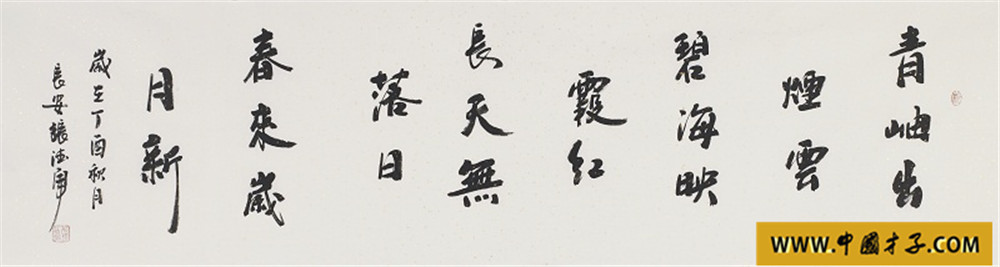 青岫出
煙雲
碧海映
霞紅
長天無
落日
春來歲
月新
歲在丁酉秋月
長安張德寧
WWW.中國才子.COM